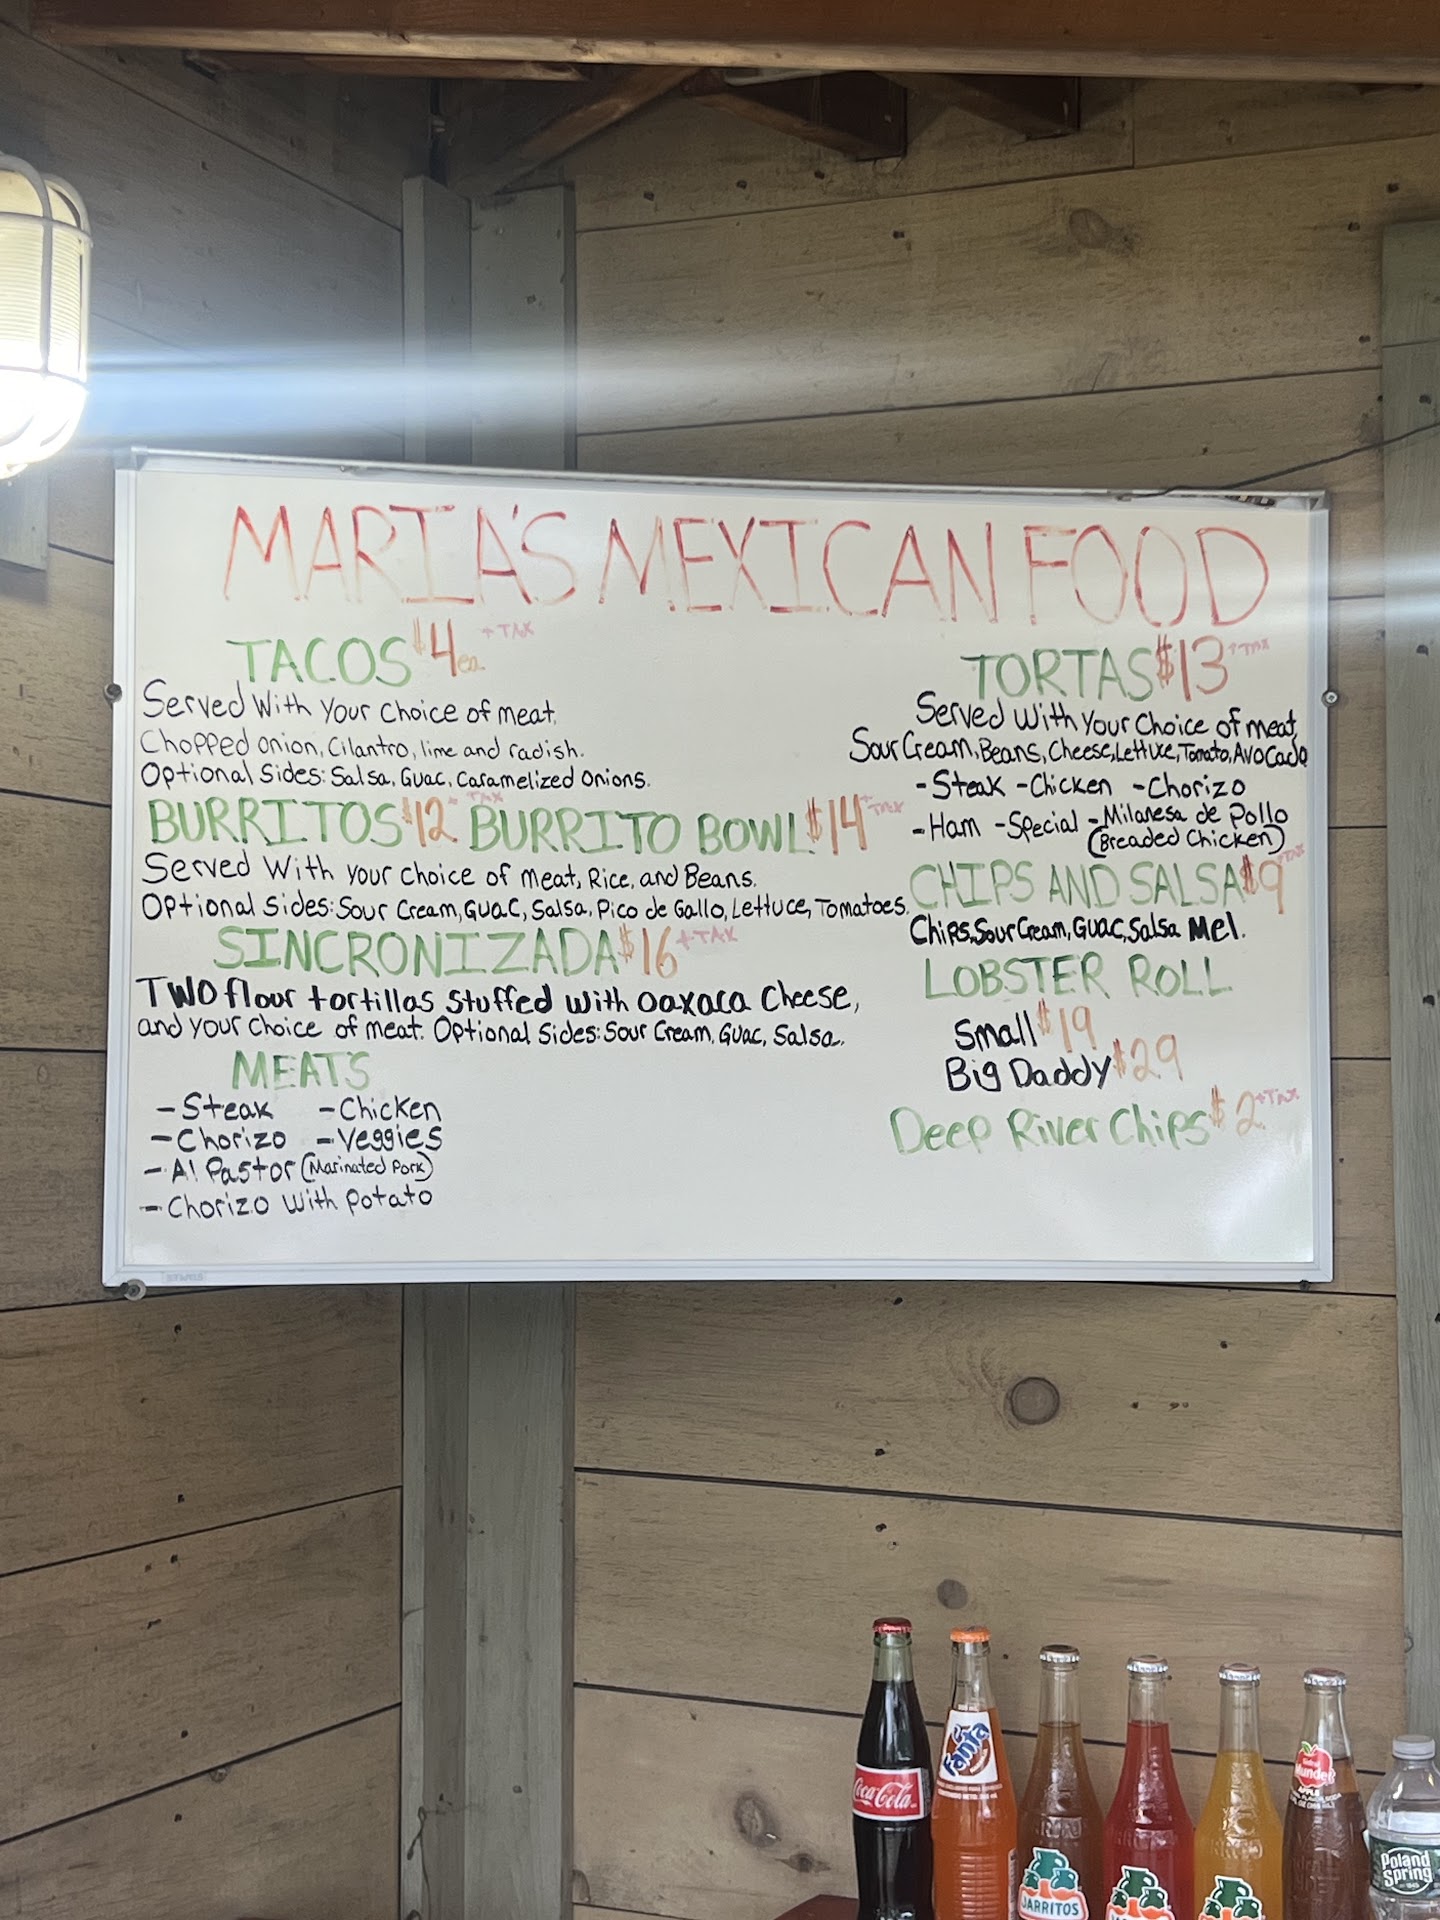 MARIA'S MEXICAN FOOD
TACOS $4 ea. + TAX
Served With Your Choice of meat.
Chopped onion, Cilantro, lime and radish.
Optional Sides: Salsa, Guac, Caramelized Onions.
BURRITOS $12 + TAX BURRITO BOWL $14 + TAX
Served With Your Choice of Meat, Rice, and Beans.
Optional Sides: Sour Cream, Guac, Salsa, Pico de Gallo, Lettuce, Tomatoes.
SINCRONIZADA $16 + TAX
TWO flour tortillas Stuffed with Oaxaca Cheese,
and your Choice of meat. Optional Sides: Sour Cream, Guac, Salsa.
MEATS
- Steak - Chicken
- Chorizo - Veggies
- Al Pastor (Marinated Pork)
- Chorizo With Potato
TORTAS $13 + TAX
Served With Your Choice of meat,
Sour Cream, Beans, Cheese, Lettuce, Tomato, Avocado
- Steak - Chicken - Chorizo
- Ham - Special - Milanesa de Pollo
(Breaded Chicken)
CHIPS AND SALSA $9 + TAX
Chips, Sour Cream, Guac, Salsa Mel.
LOBSTER ROLL
Small $19
Big Daddy $29
Deep River Chips $2 + Tax
Coca-Cola
Fanta
JARRITOS
Mundet
APPLE
Poland
Spring